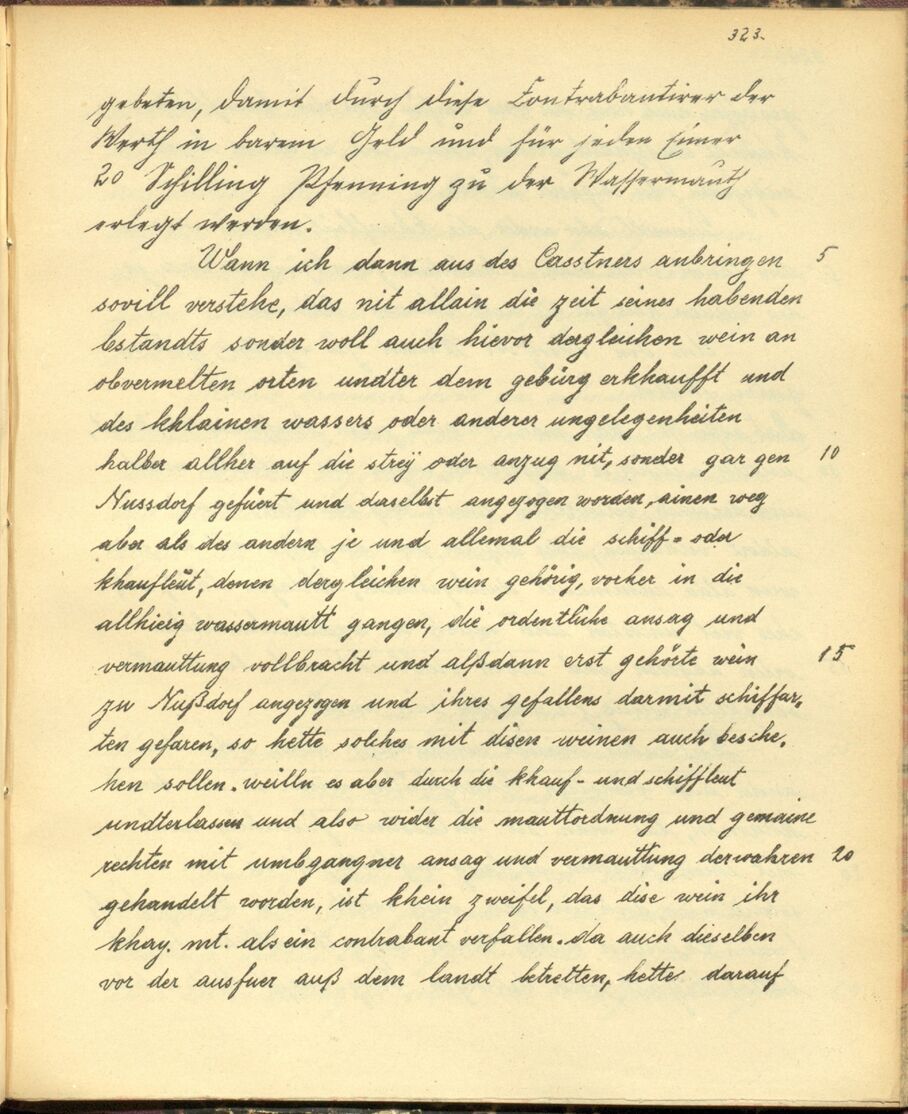 323.
gebeten, damit durch diese Contrabantirer der
Werth in barem Geld und für jeden Eimer
20 Schilling Pfenning zu der Wassermauth
erlegt werden.
Wann ich dann aus des Casstners anbringen 5
sovill verstehe, das nit allain die zeit seines habenden
bstandts sonder woll auch hievor dergleichen wein an
obvermelten orten undter dem gebürg erkhaufft und
des khlainen wassers oder anderer ungelegenheiten
halber allher auf die streÿ oder anzug nit, sonder gar gen 10
Nussdorf gefüert und daselbst angezogen worden, ainen weg
aber als des andern je und allemal die schiff= oder
khaufleüt, denen dergleichen wein gehörig, vorher in die
allhieig wassermautt gangen, die ordentliche ansag und
vermauttung vollbracht und alßdann erst gehörte wein 15
zu Nußdorf angezogen und ihres gefallens darmit schiffar,
ten gefaren, so hette solches mit disen weinen auch besche,
hen sollen. weilln es aber durch die khauf- und schiffleut
undterlassen und also wider die mauttordnung und gemaine
rechten mit umbgangner ansag und vermauttung der wahren 20
gehandelt worden, ist khein zweifel, das dise wein ihr
khay. mt. als ein contrabant verfallen. da auch dieselben
vor der ausfuer auß dem landt betretten, hette darauf